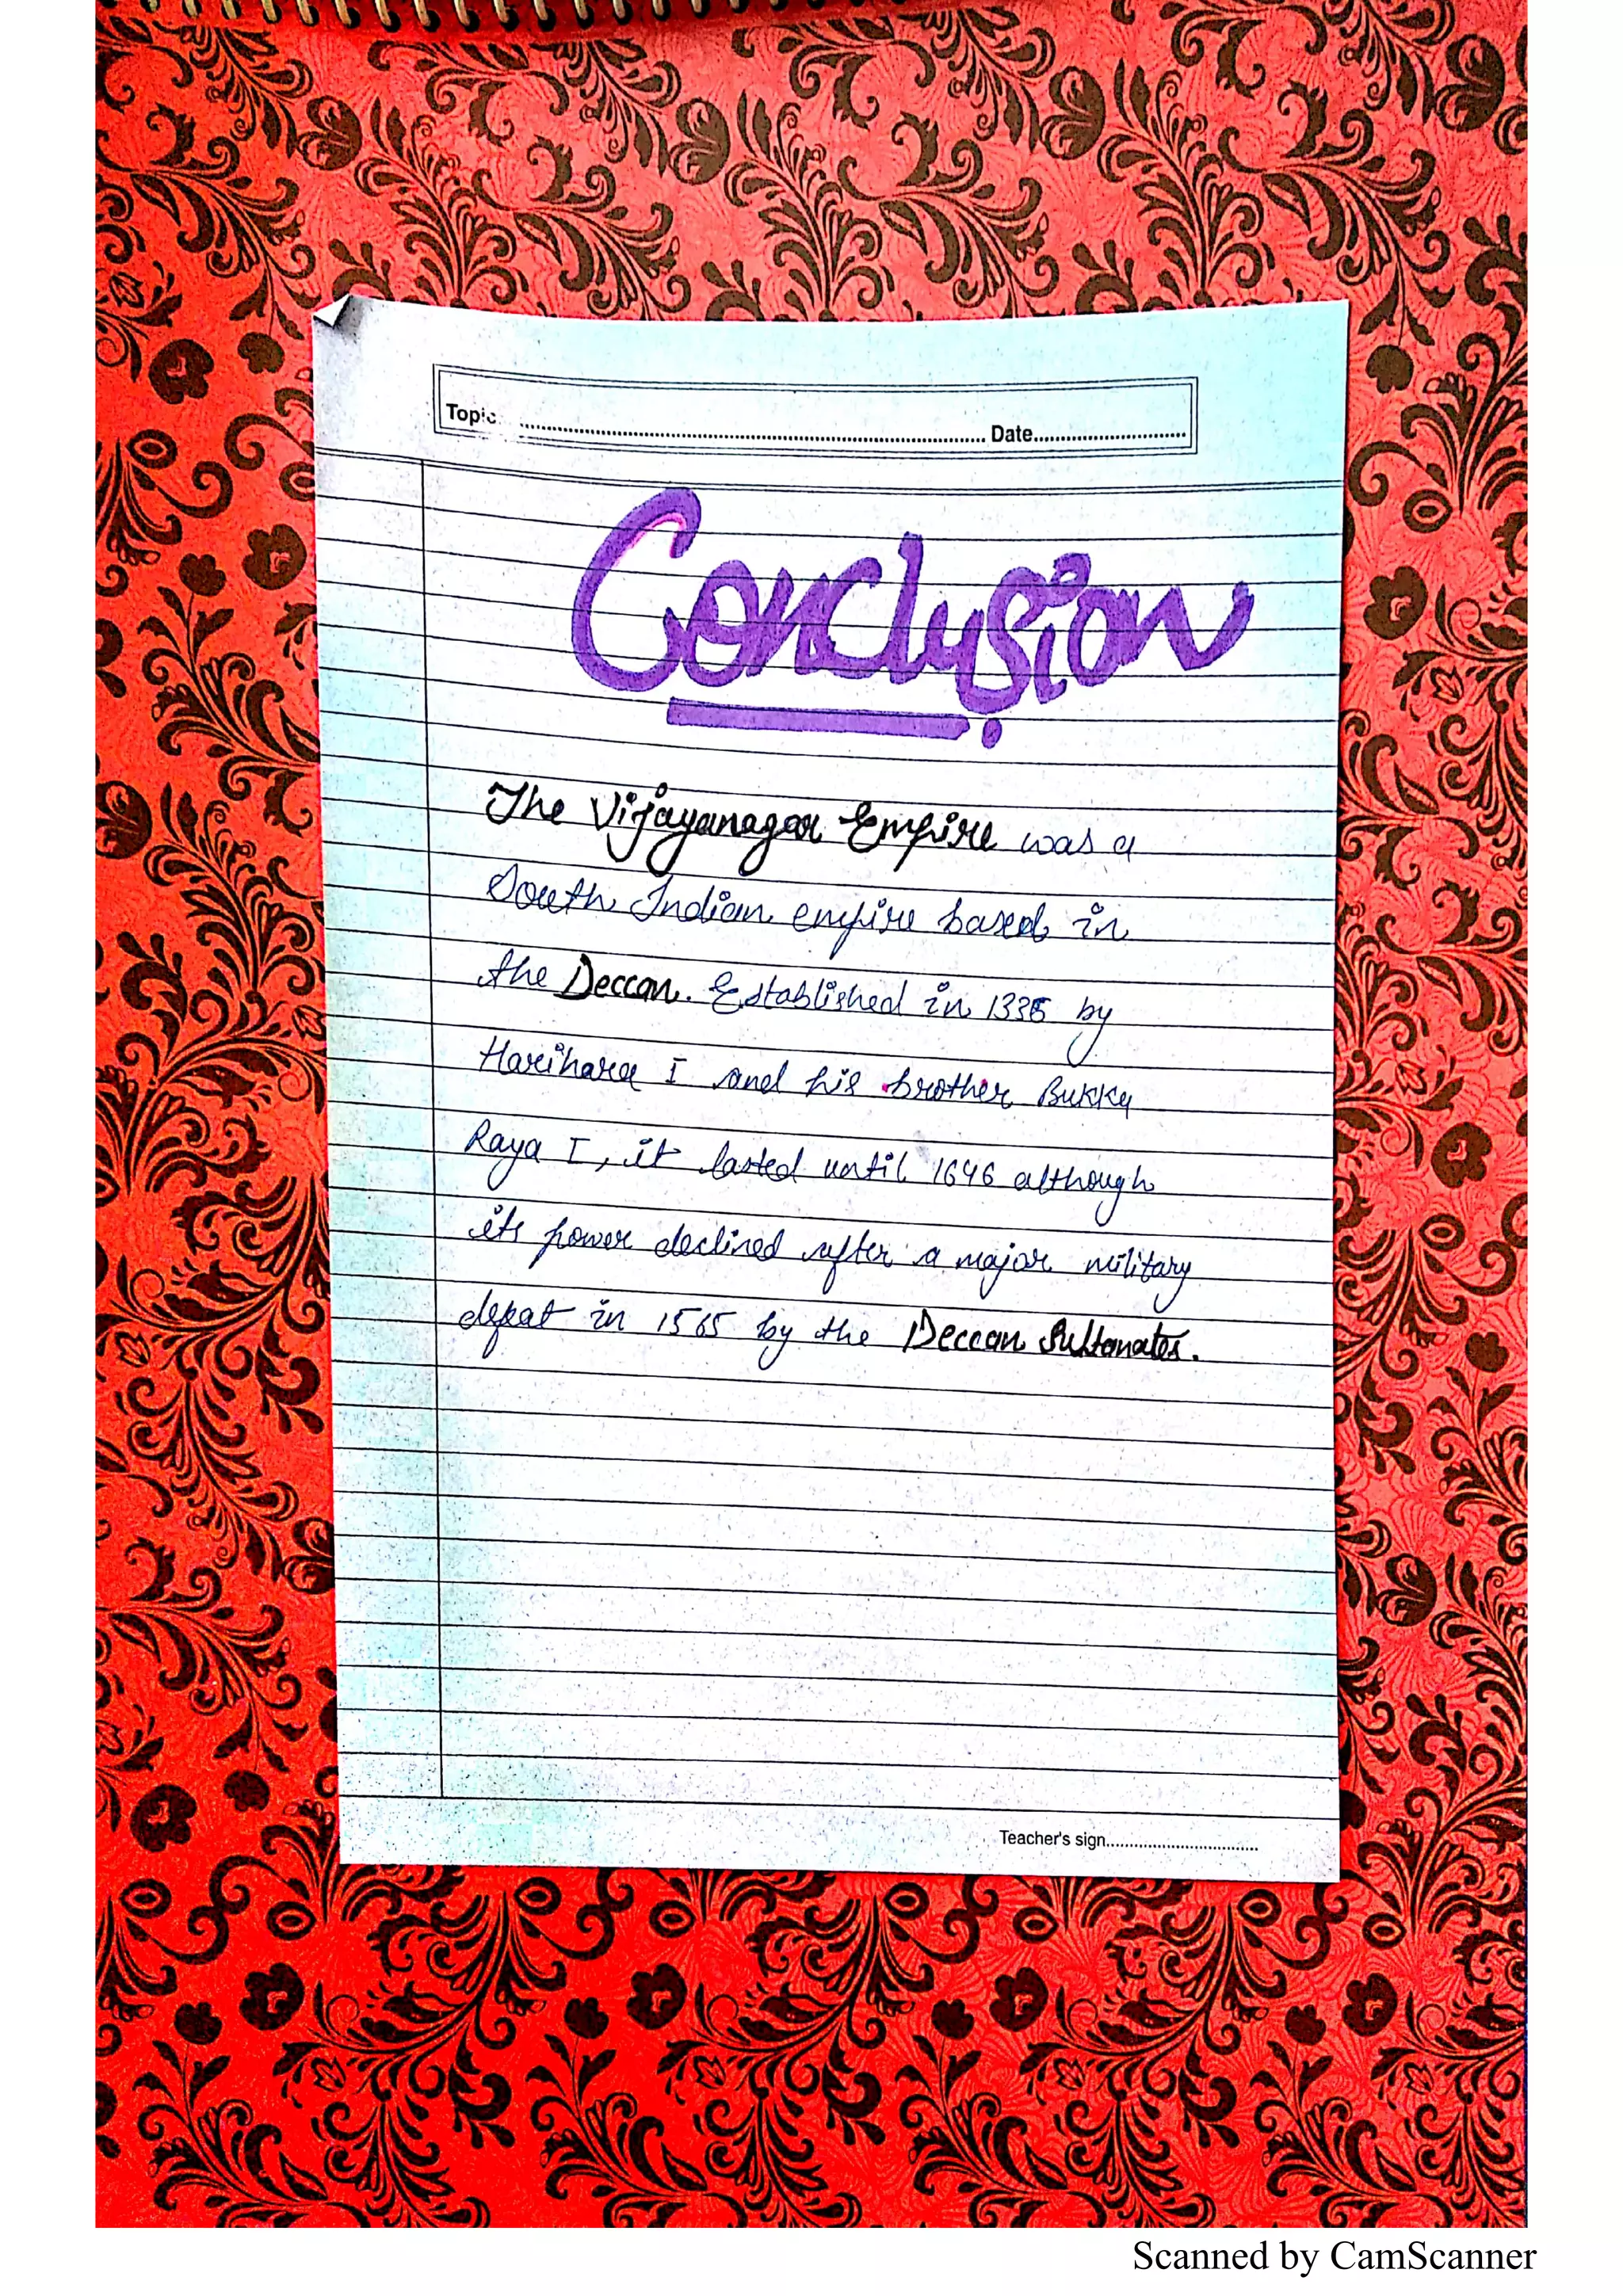 Topic.......................................................Date............................
Conclusion
The Vijayanagar Empire was a
South Indian empire based in
the Deccan. Established in 1336 by
Harihara I and his brother Bukka
Raya I, it lasted until 1646 although
its power declined after a major military
defeat in 1565 by the Deccan Sultanates.
Teacher's sign................................
Scanned by CamScanner